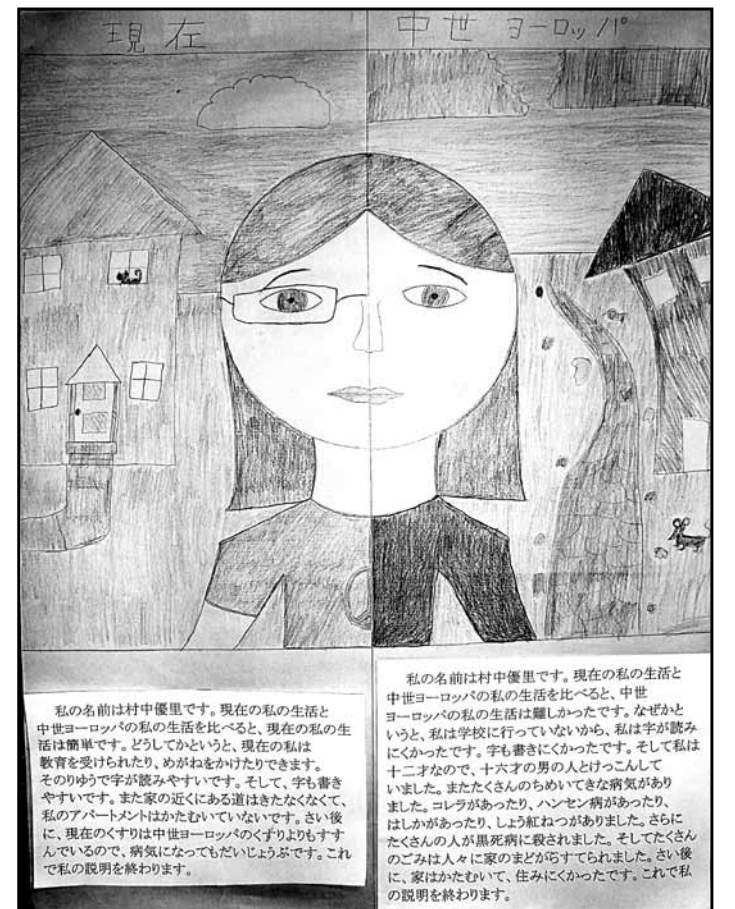 現在
中世ヨーロッパ
私の名前は村中優里です。現在の私の生活と
中世ヨーロッパの私の生活を比べると、現在の私の生
活は簡単です。どうしてかというと、現在の私は
教育を受けられたり、めがねをかけたりできます。
そのりゆうで字が読みやすいです。そして、字も書き
やすいです。また家の近くにある道はきたなくなくて、
私のアパートメントはかたむいていないです。さい後
に、現在のくすりは中世ヨーロッパのくずりよりもすす
んでいるので、病気になってもだいじょうぶです。これ
で私の説明を終わります。
私の名前は村中優里です。現在の私の生活と
中世ヨーロッパの私の生活を比べると、中世
ヨーロッパの私の生活は難しかったです。なぜかと
いうと、私は学校に行っていないから、私は字が読み
にくかったです。字も書きにくかったです。そして私は
十二才なので、十六才の男の人とけっこんして
いました。またたくさんのちめいてきな病気があり
ました。コレラがあったり、ハンセン病があったり、
はしかがあったり、しょう紅ねつがありました。さらに
たくさんの人が黒死病に殺されました。そしてたくさん
のごみは人々に家のまどがらすてられました。さい後
に、家はかたむいて、住みにくかったです。これで私
の説明を終わります。